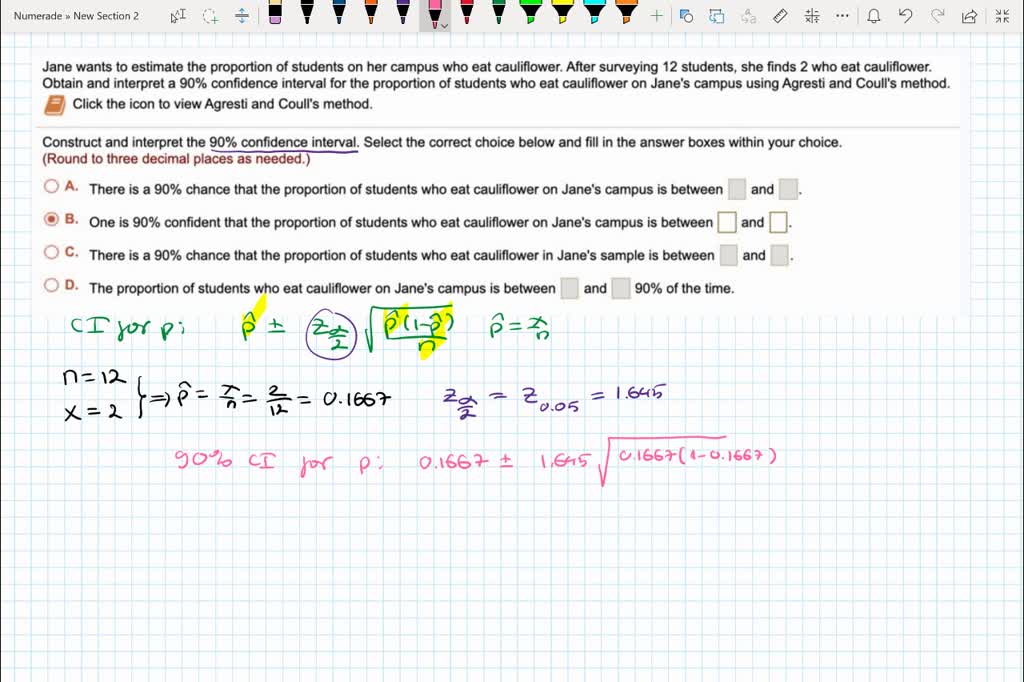 Numerade » New Section 2
Jane wants to estimate the proportion of students on her campus who eat cauliflower. After surveying 12 students, she finds 2 who eat cauliflower.
Obtain and interpret a 90% confidence interval for the proportion of students who eat cauliflower on Jane's campus using Agresti and Coull's method.
Click the icon to view Agresti and Coull's method.
Construct and interpret the 90% confidence interval. Select the correct choice below and fill in the answer boxes within your choice.
(Round to three decimal places as needed.)
A. There is a 90% chance that the proportion of students who eat cauliflower on Jane's campus is between and .
B. One is 90% confident that the proportion of students who eat cauliflower on Jane's campus is between and .
C. There is a 90% chance that the proportion of students who eat cauliflower in Jane's sample is between and .
D. The proportion of students who eat cauliflower on Jane's campus is between and 90% of the time.
CI for p: p̂ ± z_{α/2} √(p̂(1-p̂)/n) p̂ = x/n
n=12
x=2 } ⇒ p̂ = x/n = 2/12 = 0.1667 z_{α/2} = z_{0.05} = 1.645
90% CI for p: 0.1667 ± 1.645 √0.1667(1-0.1667)